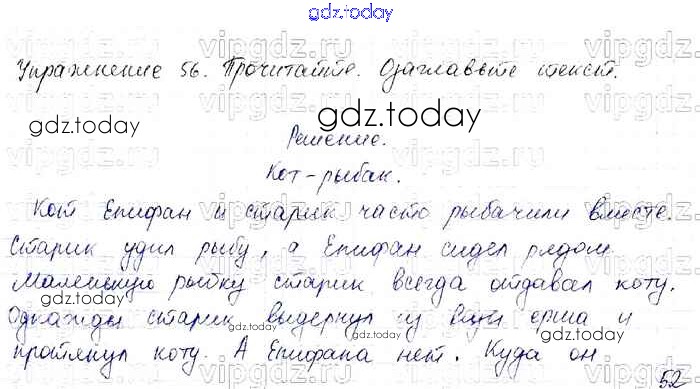 gdz.today
Упражнение 56. Прочитайте. Озаглавьте текст.
gdz.today
gdz.today
Решение.
Кот-рыбак.
Кот Епифан и старик часто рыбачили вместе.
Старик удил рыбу, а Епифан сидел рядом.
Маленькую рыбку старик всегда отдавал коту.
Однажды старик выдернул из воды ерша и
протянул коту. А Епифана нет. Куда он
gdz.today
gdz.today
gdz.today
52